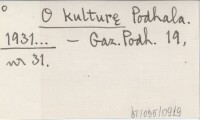 O kulturę Podhala.
1931... — Gaz. Podh. 19,
nr 31.